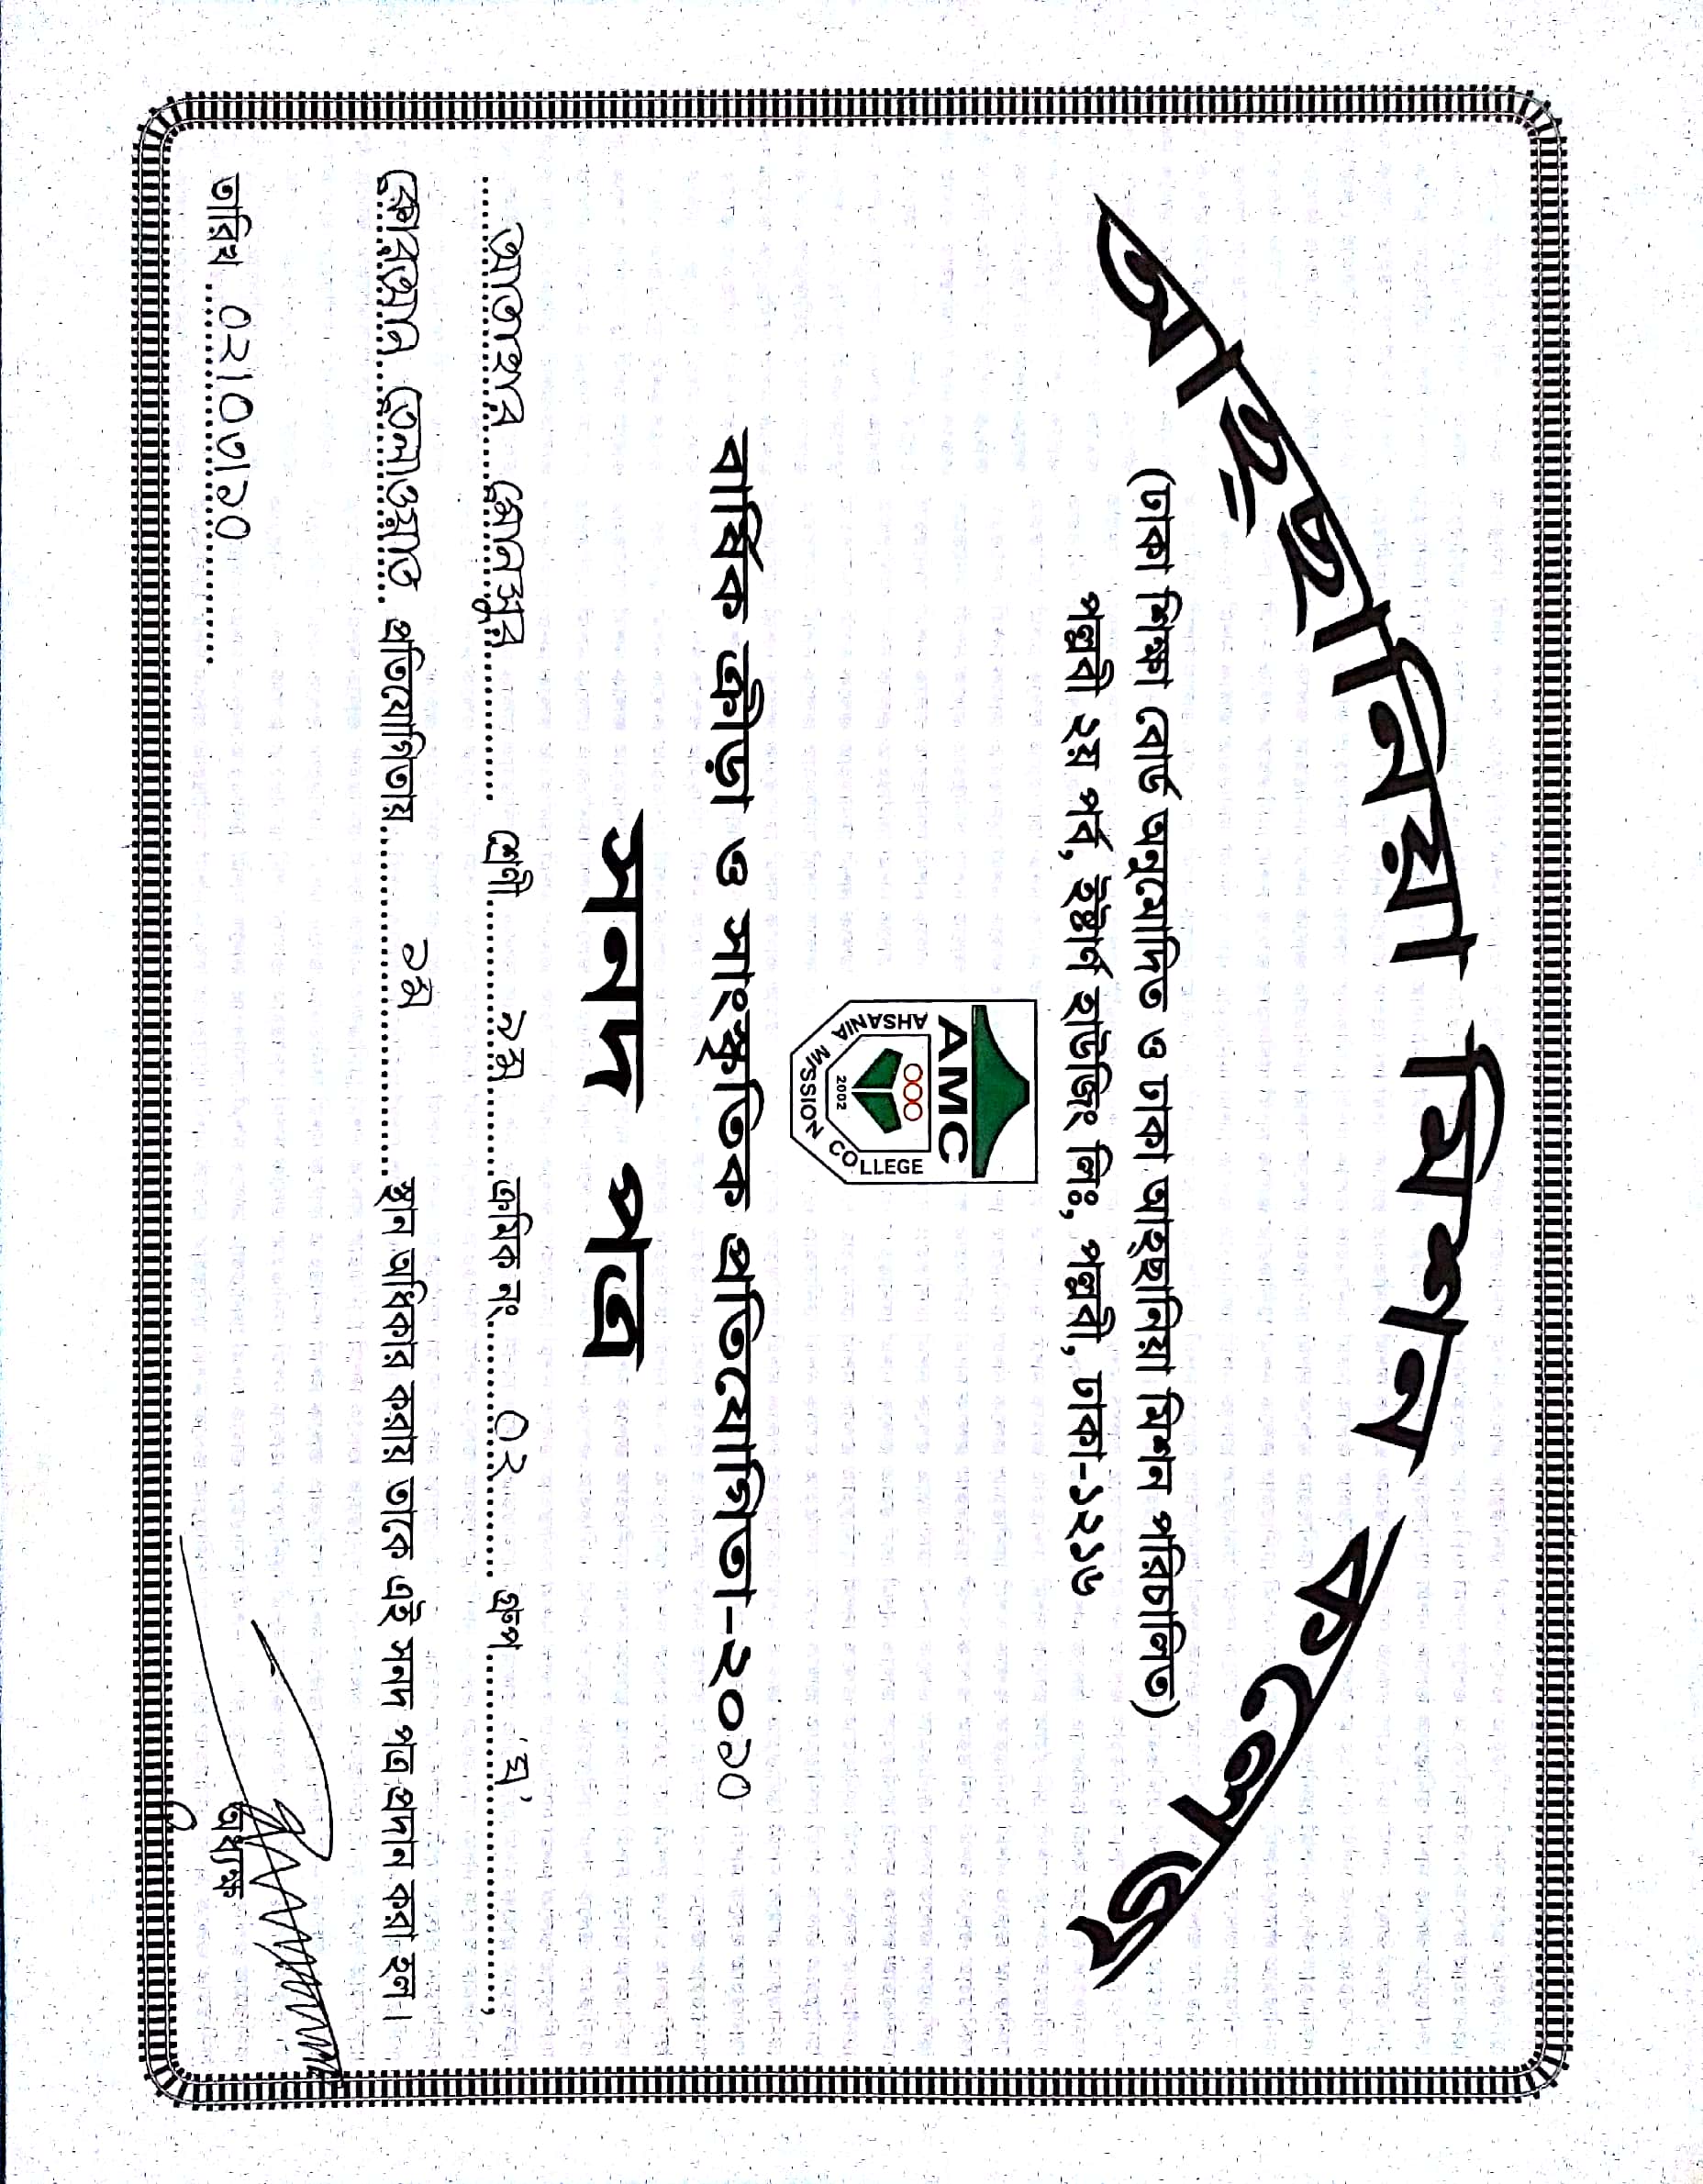 আহ্ছানিয়া মিশন কলেজ
(ঢাকা শিক্ষা বোর্ড অনুমোদিত ও ঢাকা আহ্ছানিয়া মিশন পরিচালিত)
পল্লবী ২য় পর্ব, ইষ্টার্ণ হাউজিং লিঃ, পল্লবী, ঢাকা-১২১৬
AMC
AHSANIA MISSION COLLEGE
2002
বার্ষিক ক্রীড়া ও সাংস্কৃতিক প্রতিযোগিতা-২০১০
সনদ পত্র
আতাহার মোনসুর শ্রেণী ৯ম ক্রমিক নং ০২ গ্রুপ 'ঘ',
কোরআন তেলাওয়াত প্রতিযোগিতায় ১ম স্থান অধিকার করায় তাকে এই সনদ পত্র প্রদান করা হল।
তারিখ ০২|০৩|১০
অধ্যক্ষ